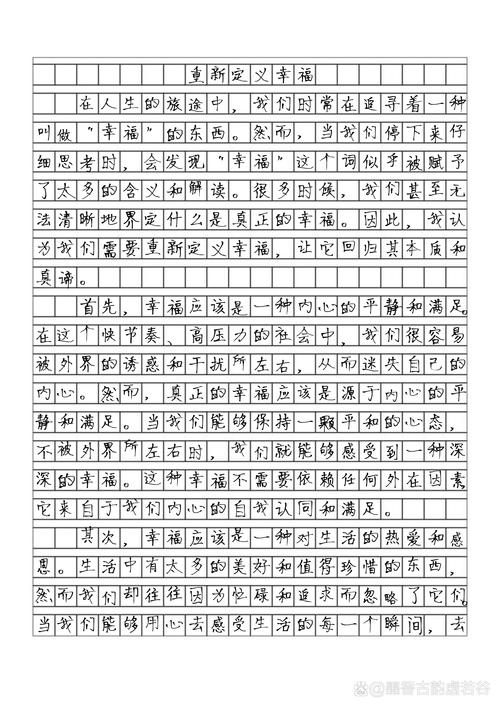 重新定义幸福
在人生的旅途中，我们时常在追寻着一种
叫做“幸福”的东西。然而，当我们停下来仔
细思考时，会发现“幸福”这个词似乎被赋予
了太多的含义和解读。很多时候，我们甚至无
法清晰地界定什么是真正的幸福。因此，我认
为我们需要重新定义幸福，让它回归其本质和
真谛。
首先，幸福应该是一种内心的平静和满足。
在这个快节奏、高压力的社会中，我们很容易
被外界的诱惑和干扰所左右，从而迷失自己的
内心。然而，真正的幸福应该是源于内心的平
静和满足。当我们能够保持一颗平和的心态，
不被外界所左右时，我们就能够感受到一种深
深的幸福。这种幸福不需要依赖任何外在因素，
它来自于我们内心的自我认同和满足。
其次，幸福应该是一种对生活的热爱和感
恩。生活中有太多的美好和值得珍惜的东西，
然而我们却往往因为忙碌和追求而忽略了它们。
当我们能够用心去感受生活的每一个瞬间，去